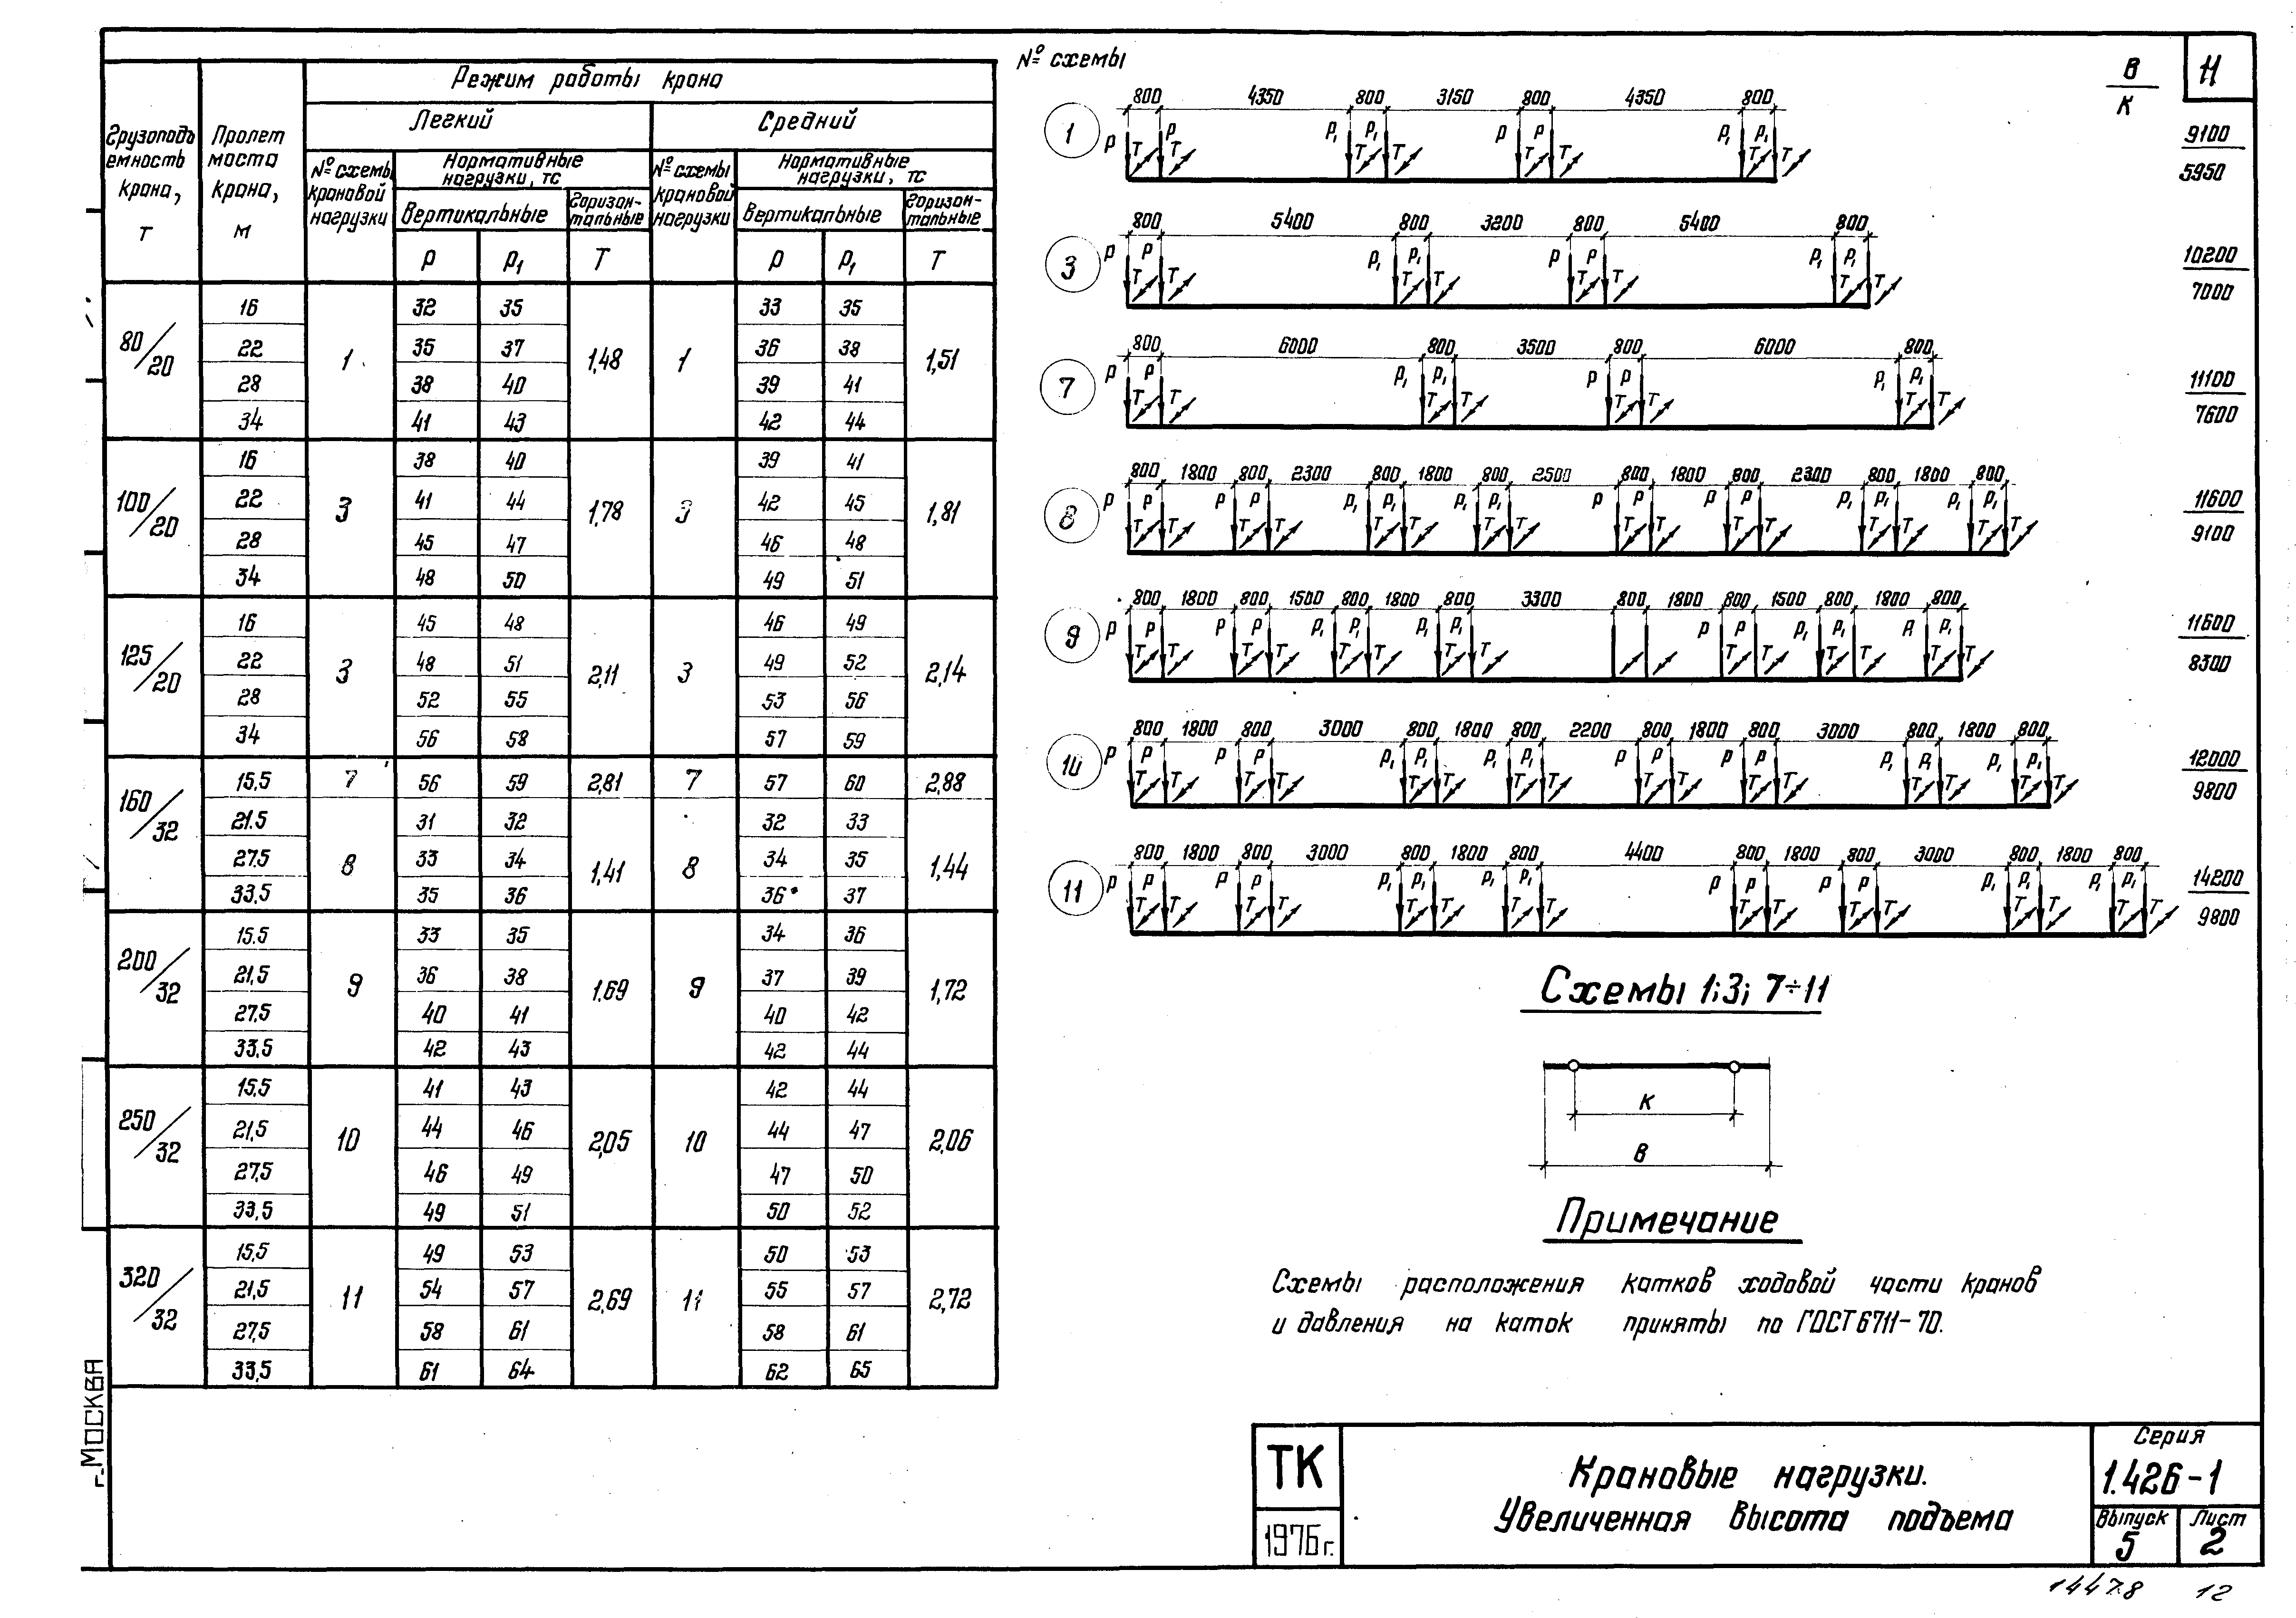 11
Режим работы крана
Легкий Средний
Грузоподъ
емность
крана,
т
Пролет
моста
крана,
м
№ схемы
крановой
нагрузки
Нормативные
нагрузки, тс
Вертикальные
Горизон-
тальные
P P₁ T
№ схемы
крановой
нагрузки
Нормативные
нагрузки, тс
Вертикальные
Горизон-
тальные
P P₁ T
80/20 1 1,48 1 1,51
16 32 35 33 35
22 35 37 36 38
28 38 40 39 41
34 41 43 42 44
100/20 3 1,78 3 1,81
16 38 40 39 41
22 41 44 42 45
28 45 47 46 48
34 48 50 49 51
125/20 3 2,11 3 2,14
16 45 48 46 49
22 48 51 49 52
28 52 55 53 56
34 56 58 57 59
160/32
15,5 7 56 59 2,81 7 57 60 2,88
8 1,41 8 1,44
21.5 31 32 32 33
27.5 33 34 34 35
33,5 35 36 36 37
200/32 9 1.69 9 1,72
15.5 33 35 34 36
21,5 36 38 37 39
27,5 40 41 40 42
33,5 42 43 42 44
250/32 10 2,05 10 2,06
15,5 41 43 42 44
21,5 44 46 44 47
27,5 46 49 47 50
33,5 49 51 50 52
320/32 11 2,69 11 2,72
15,5 49 53 50 53
21,5 54 57 55 57
27,5 58 61 58 61
33,5 61 64 62 65
№ схемы
B
K
800 4350 800 3150 800 4350 800
1 P P P₁ P₁ P P P₁ P₁
T T T T T T T T
9100
5950
800 5400 800 3200 800 5400 800
3 P P P₁ P₁ P P P₁ P₁
T T T T T T T T
10200
7000
800 6000 800 3500 800 6000 800
7 P P P₁ P₁ P P P₁ P₁
T T T T T T T T
11100
7600
800 1800 800 2300 800 1800 800 2500 800 1800 800 2300 800 1800 800
8 P P P P P₁ P₁ P₁ P₁ P P P P P₁ P₁ P₁ P₁
T T T T T T T T T T T T T T T T
11600
9100
800 1800 800 1500 800 1800 800 3300 800 1800 800 1500 800 1800 800
9 P P P P P₁ P₁ P₁ P₁ P P P₁ P₁ P₁ P₁
T T T T T T T T T T T T T T
11600
8300
800 1800 800 3000 800 1800 800 2200 800 1800 800 3000 800 1800 800
10 P P P P P₁ P₁ P₁ P₁ P P P P P₁ P₁ P₁ P₁
T T T T T T T T T T T T T T T T
12000
9800
800 1800 800 3000 800 1800 800 4400 800 1800 800 3000 800 1800 800
11 P P P P P₁ P₁ P₁ P₁ P P P P P₁ P₁ P₁ P₁
T T T T T T T T T T T T T T T T
14200
9800
Схемы 1;3; 7÷11
K
B
Примечание
Схемы расположения катков ходовой части кранов
и давления на каток приняты по ГОСТ 6711-70.
г. Москва
ТК
1976 г.
Крановые нагрузки.
Увеличенная высота подъема
Серия
1.426-1
Выпуск Лист
5 2
14478 12